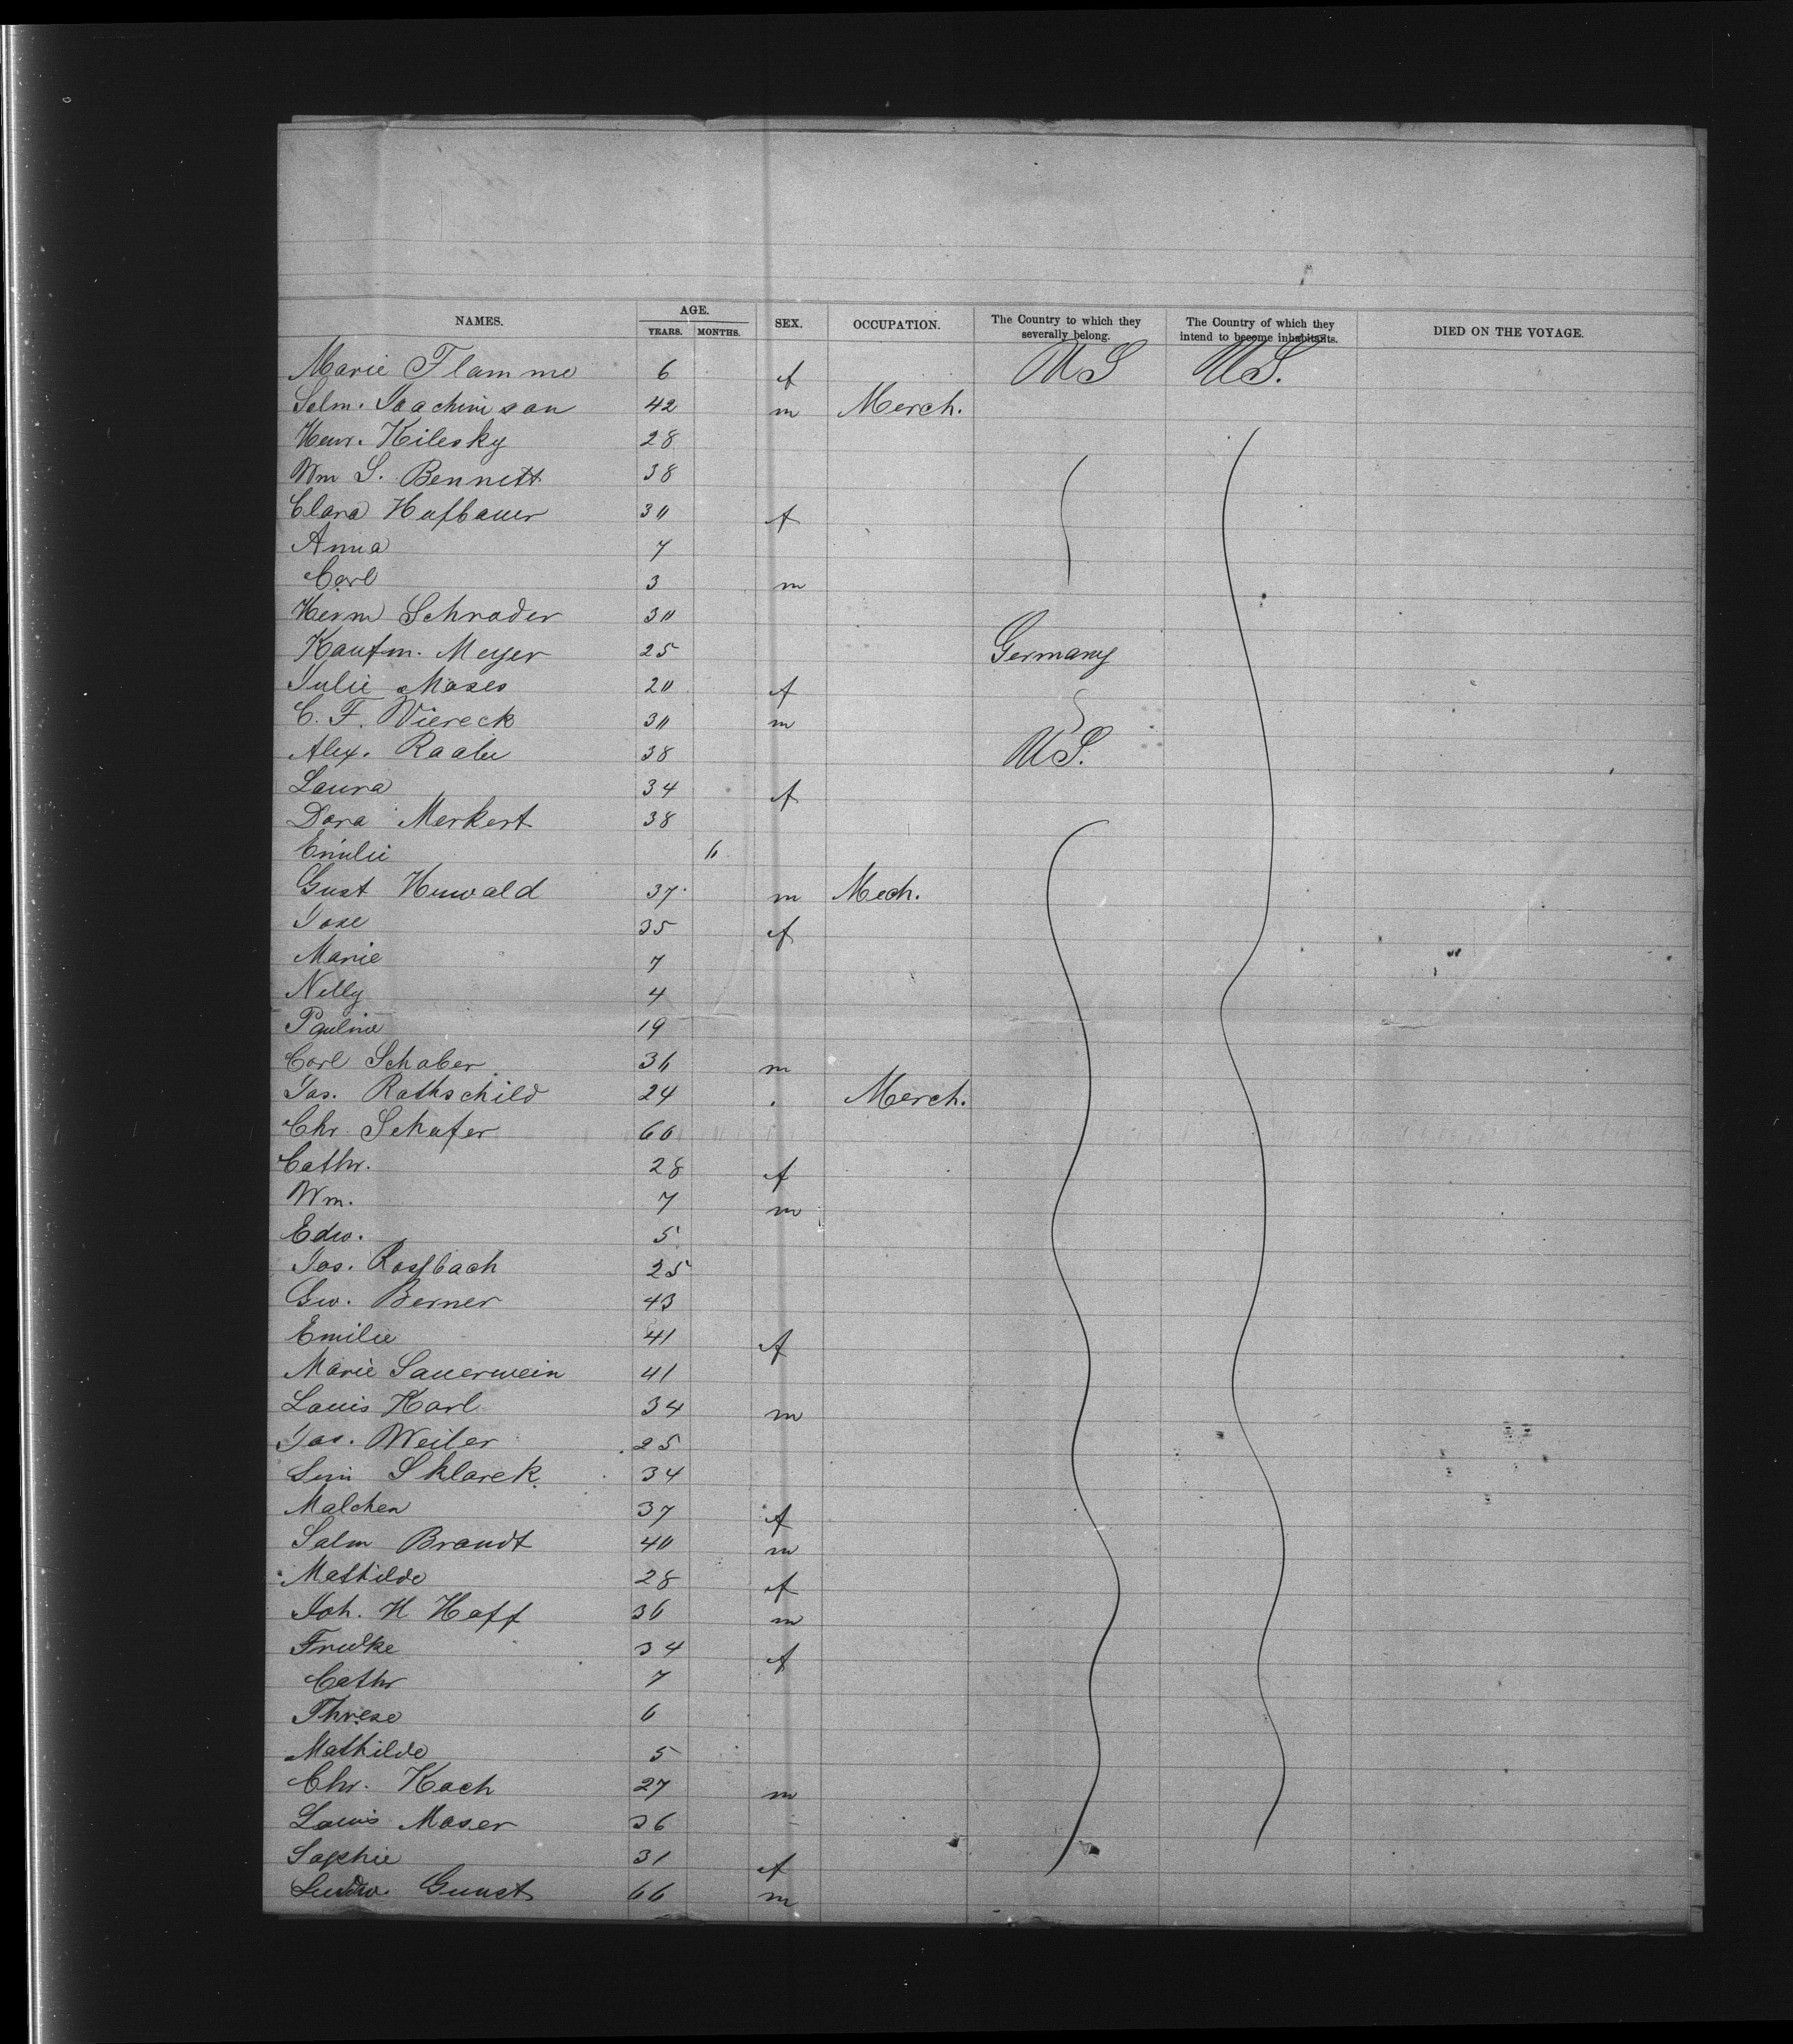 NAMES. AGE. YEARS. MONTHS. SEX. OCCUPATION. The Country to which they severally belong. The Country of which they intend to become inhabitants. DIED ON THE VOYAGE.
Marie Flamme 6 f US US.
Selm. Joachimson 42 m Merch.
Henr. Kilesky 28
Wm S. Bennett 38
Clara Hufbauer 30 f
Anna 7
Carl 3 m
Herm Schrader 30
Kaufm. Meyer 25 Germany
Julie Moses 20 f
C. F. Viereck 30 m
Alex. Raabe 38 US.
Laura 34 f
Dora Merkert 38
Emilie 6
Gust Huwald 37 m Mech.
Jose 35 f
Marie 7
Nelly 4
Pauline 19
Carl Schaber 36 m
Jas. Rothschild 24 Merch.
Chr. Schafer 60
Cathr. 28 f
Wm. 7 m
Edw. 5
Jos. Rossbach 25
Geo. Berner 43
Emilie 41 f
Marie Sauerwein 41
Louis Karl 34 m
Jas. Weiler 25
Sklarek 34
Malchen 37 f
Salm Brandt 40 m
Mathilde 28 f
Joh. H Hoff 36 m
Friedke 34 f
Cathr 7
Threse 6
Mathilde 5
Chr. Koch 27 m
Louis Moser 36
Sophie 31 f
Ludw. Gunst 66 m